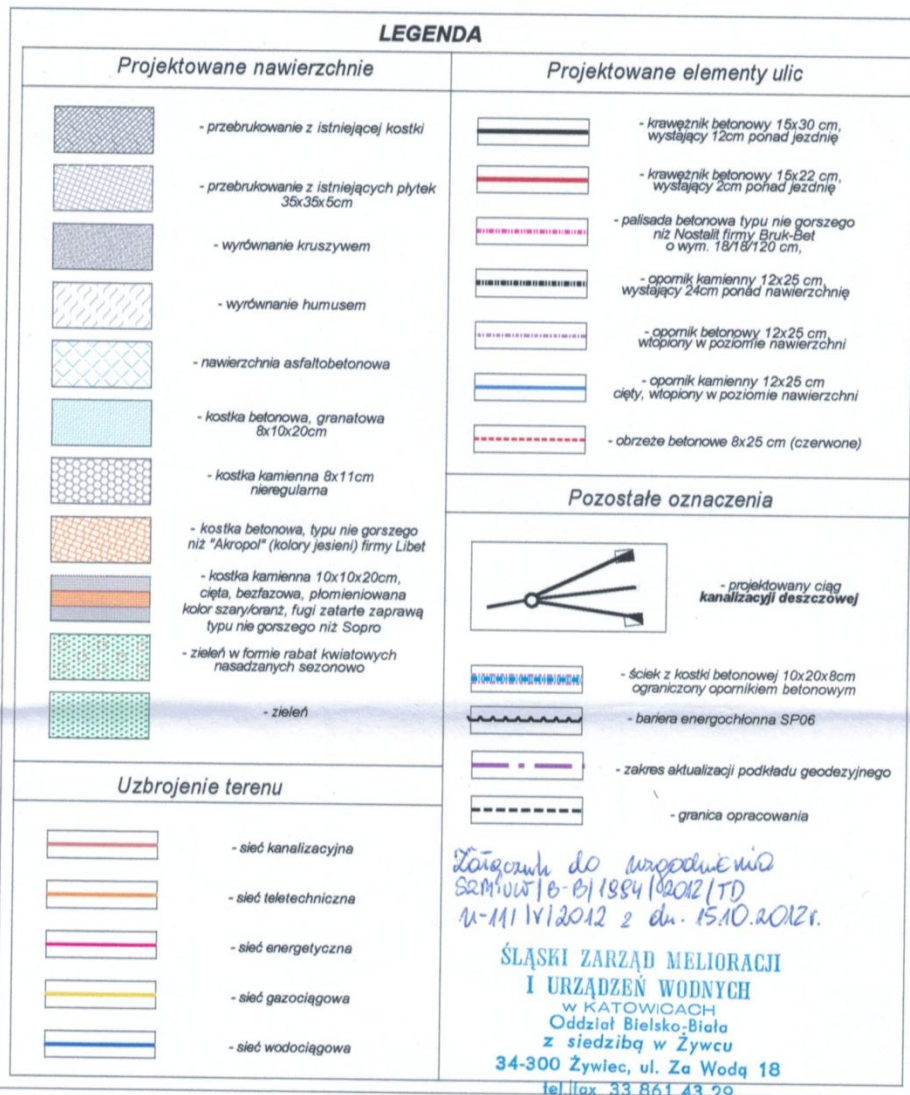 LEGENDA
Projektowane nawierzchnie
- przebrukowanie z istniejącej kostki
- przebrukowanie z istniejących płytek
35x35x5cm
- wyrównanie kruszywem
- wyrównanie humusem
- nawierzchnia asfaltobetonowa
- kostka betonowa, granatowa
8x10x20cm
- kostka kamienna 8x11cm
nieregularna
- kostka betonowa, typu nie gorszego
niż "Akropol" (kolory jesieni) firmy Libet
- kostka kamienna 10x10x20cm,
cięta, bezfazowa, płomieniowana
kolor szary/oranż, fugi zatarte zaprawą
typu nie gorszego niż Sopro
- zieleń w formie rabat kwiatowych
nasadzanych sezonowo
- zieleń
Uzbrojenie terenu
- sieć kanalizacyjna
- sieć teletechniczna
- sieć energetyczna
- sieć gazociągowa
- sieć wodociągowa
Projektowane elementy ulic
- krawężnik betonowy 15x30 cm,
wystający 12cm ponad jezdnię
- krawężnik betonowy 15x22 cm,
wystający 2cm ponad jezdnię
- palisada betonowa typu nie gorszego
niż Nostalit firmy Bruk-Bet
o wym. 18/18/120 cm,
- opornik kamienny 12x25 cm,
wystający 24cm ponad nawierzchnię
- opornik betonowy 12x25 cm,
wtopiony w poziomie nawierzchni
- opornik kamienny 12x25 cm
cięty, wtopiony w poziomie nawierzchni
- obrzeże betonowe 8x25 cm (czerwone)
Pozostałe oznaczenia
- projektowany ciąg
kanalizacyji deszczowej
- ściek z kostki betonowej 10x20x8cm
ograniczony opornikiem betonowym
- bariera energochłonna SP06
- zakres aktualizacji podkładu geodezyjnego
- granica opracowania
Załącznik do uzgodnienia
2012/TD
2012 z dn. 15.10.2012r.
ŚLĄSKI ZARZĄD MELIORACJI
I URZĄDZEŃ WODNYCH
w KATOWICACH
Oddział Bielsko-Biała
z siedzibą w Żywcu
34-300 Żywiec, ul. Za Wodą 18
tel./fax 33 861 43 29